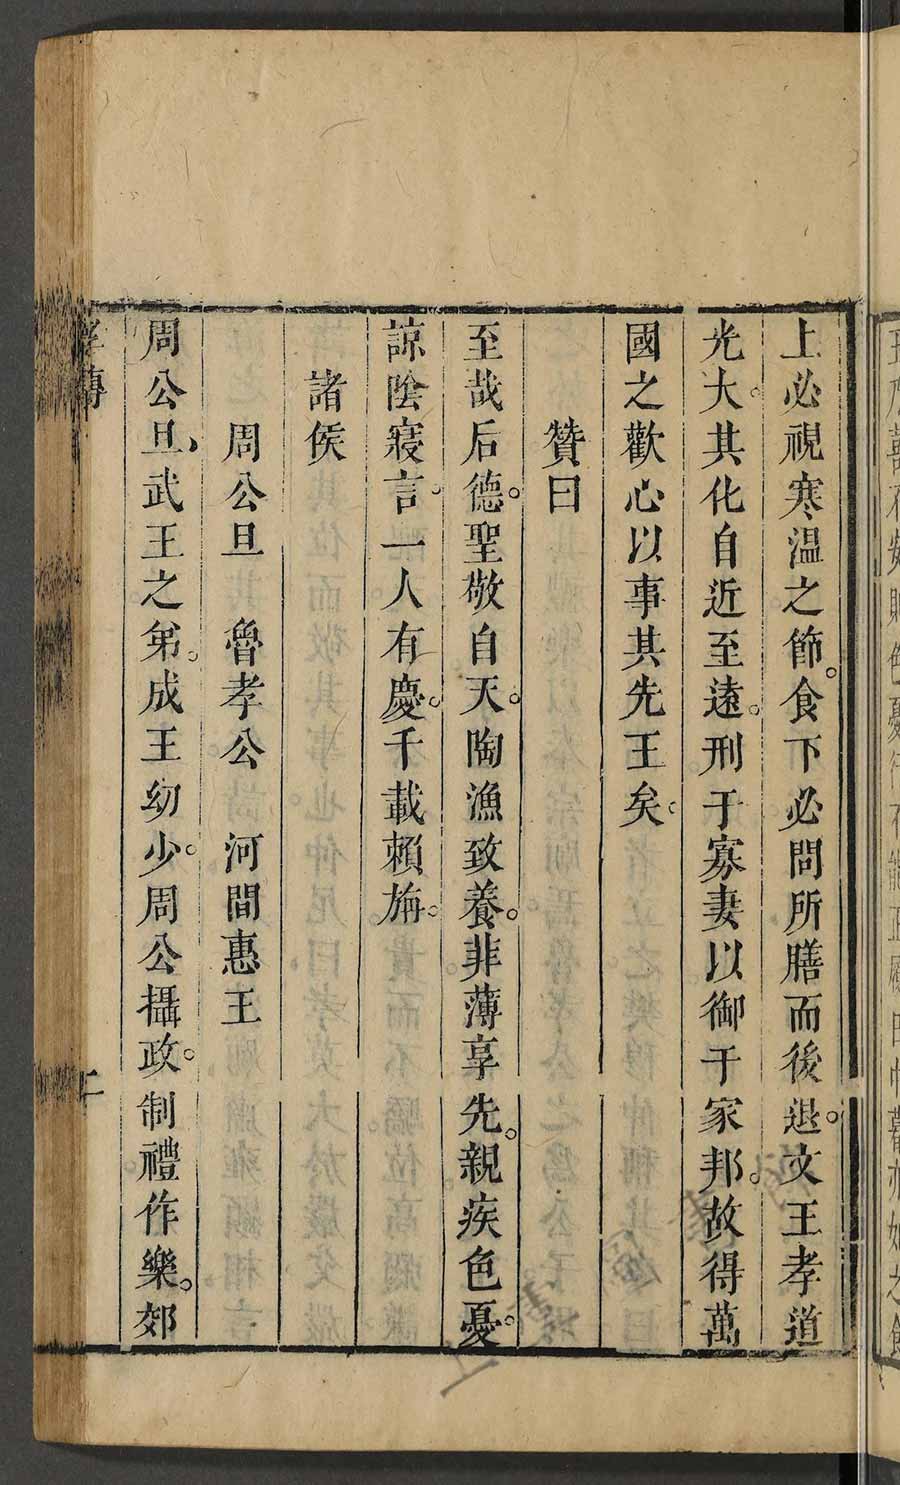 上必視寒溫之節。食下必問所膳而後退。文王孝道
光大。其化自近至遠。刑于寡妻以御于家邦。故得萬
國之歡心以事其先王矣。
贊曰
至哉后德。聖敬自天。陶漁致養。非薄享先。親疾色憂。
諒陰寢言。一人有慶。千載賴旃。
諸侯
周公旦　魯孝公　河間惠王
周公旦、武王之弟。成王幼少。周公攝政。制禮作樂。郊
孝傳
二